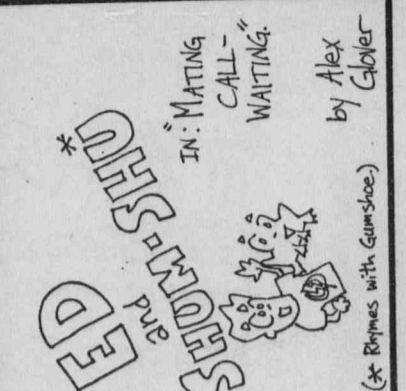 ED
and
SHUM-SHU*
IN: "MATING
CALL-
WAITING."
by Alex
Glover
(* Rhymes with Gumshoe.)